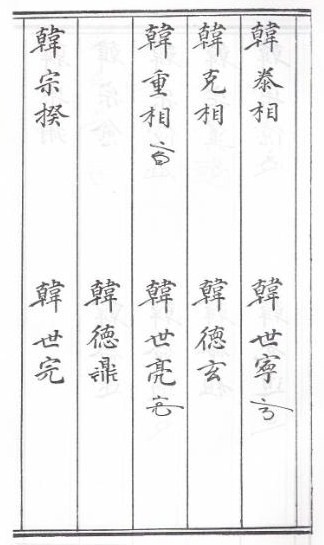 韓泰相
韓世寧
韓克相
韓德玄
韓重相
韓世亮
韓德鼎
韓宗揆
韓世完